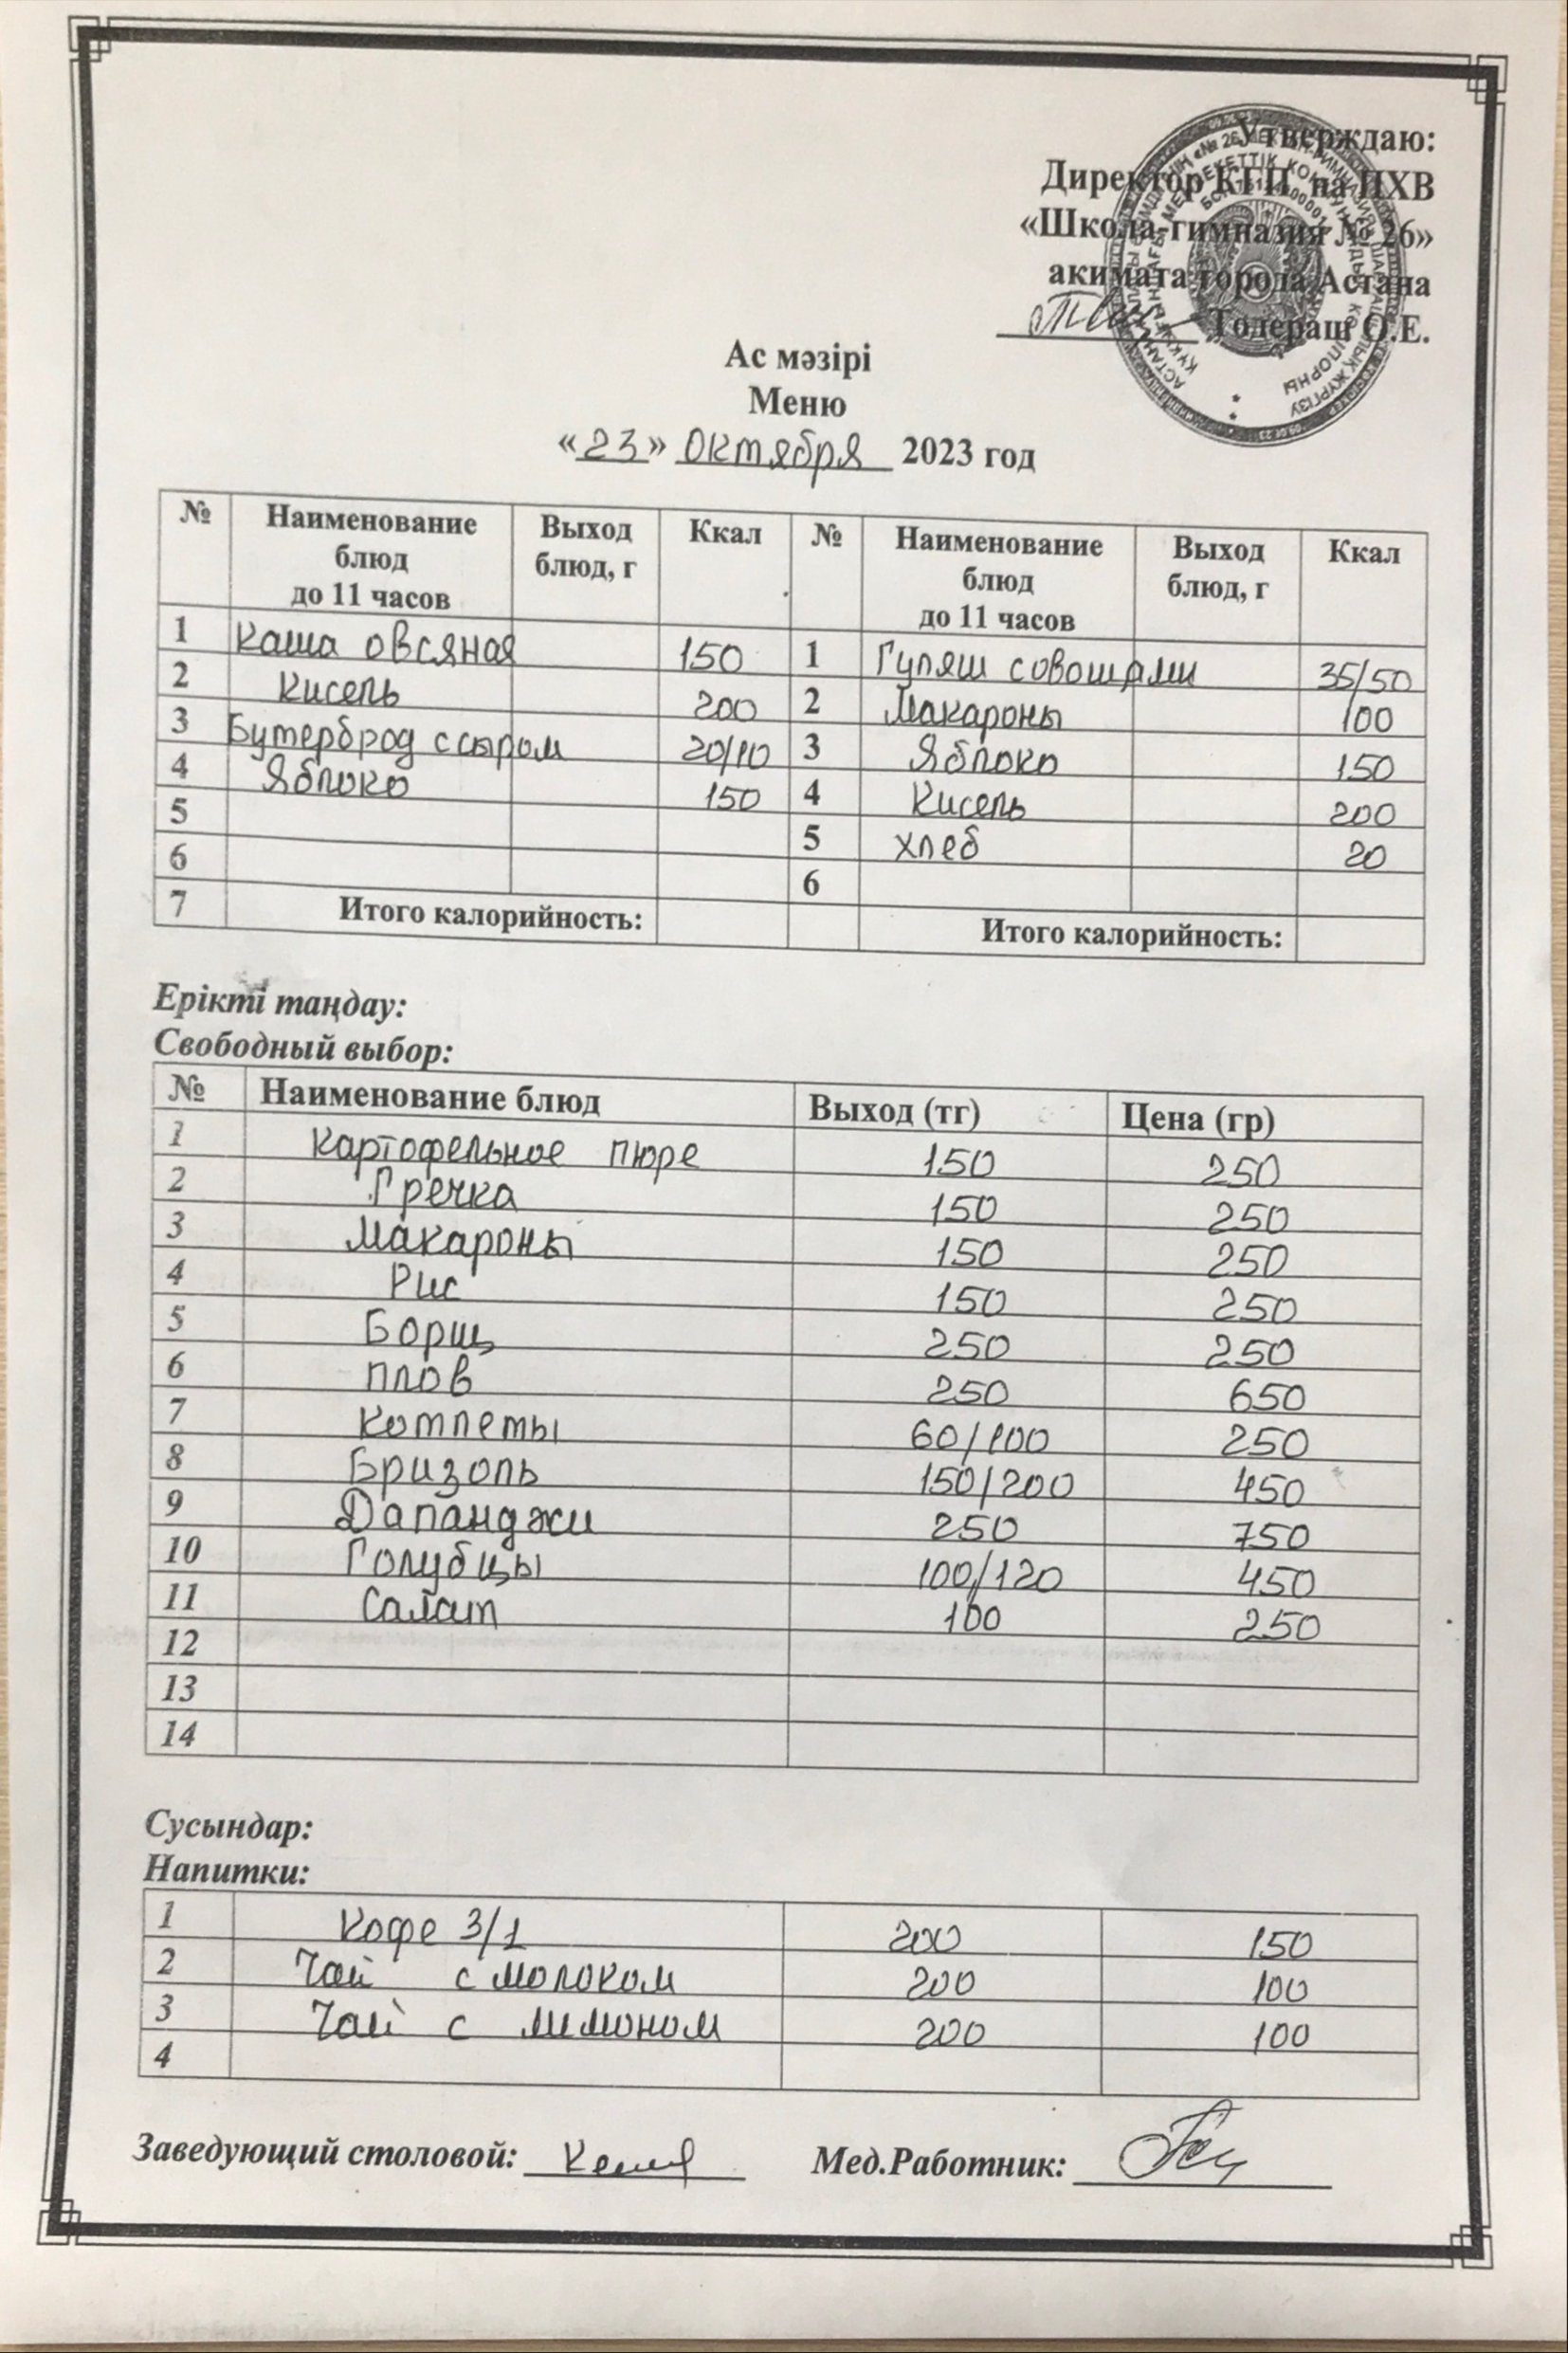 Утверждаю:
Директор КГП на ПХВ
«Школа-гимназия № 26»
акимата города Астана
Тодераш О.Е.
Ас мәзірі
Меню
«23» октября 2023 год
№ Наименование блюд до 11 часов Выход блюд, г Ккал № Наименование блюд до 11 часов Выход блюд, г Ккал
1 Каша овсяная 150 1 Гуляш с овощами 35/50
2 Кисель 200 2 Макароны 100
3 Бутерброд с сыром 20/10 3 Яблоко 150
4 Яблоко 150 4 Кисель 200
5 5 хлеб 20
6 6
7 Итого калорийность: Итого калорийность:
Ерікті таңдау:
Свободный выбор:
№ Наименование блюд Выход (тг) Цена (гр)
1 Картофельное пюре 150 250
2 Гречка 150 250
3 Макароны 150 250
4 Рис 150 250
5 Борщ 250 250
6 плов 250 650
7 Котлеты 60/100 250
8 Бризоль 150/200 450
9 Дапанджи 250 750
10 Голубцы 100/120 450
11 Салат 100 250
12
13
14
Сусындар:
Напитки:
1 Кофе 3/1 200 150
2 Чай с молоком 200 100
3 Чай с лимоном 200 100
4
Заведующий столовой: Мед.Работник: